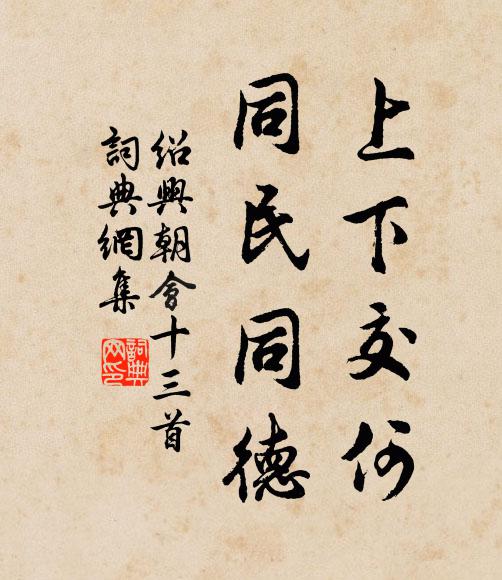 上下交何
同民同德
绍興朝會十三首
詞典網集
詞典網印